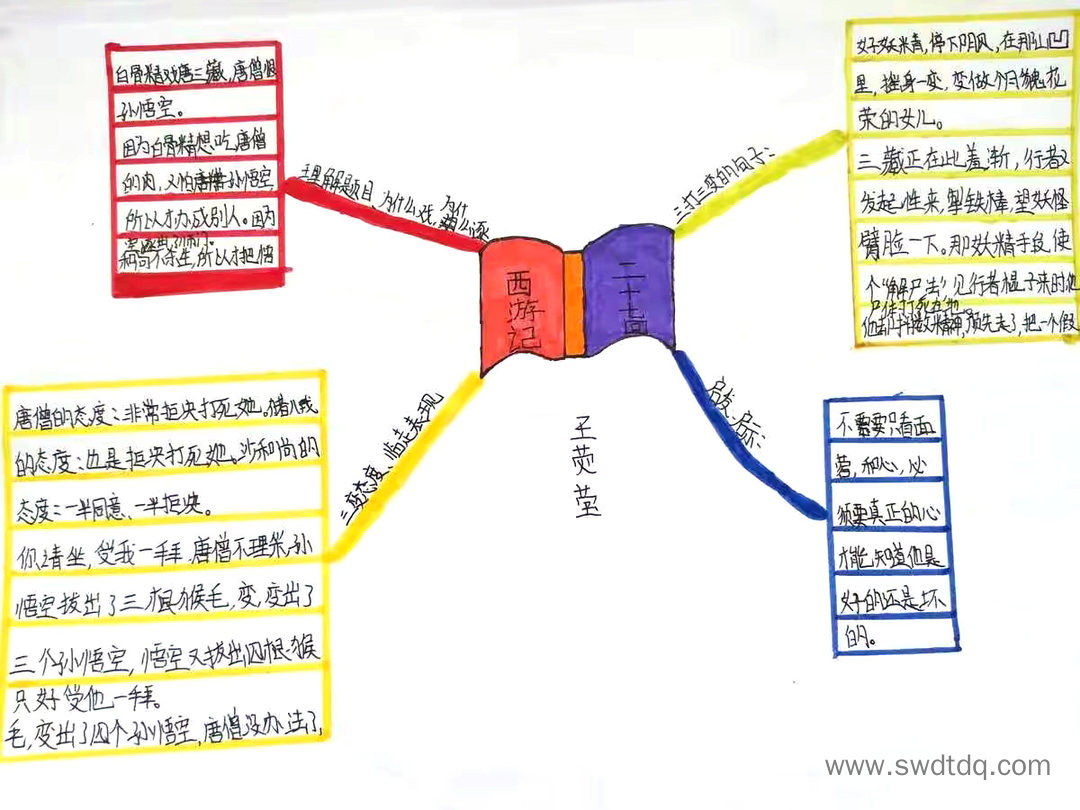 西游记
二十七回
王荧莹
理解题目、为什么戏,为什么逐
白骨精戏唐三藏,唐僧恨
孙悟空。
因为白骨精想吃唐僧
的肉,又怕唐僧孙悟空,
所以才办成别人。因为
和尚不杀生,所以才把悟
三打三变的句子:
好妖精,停下阴风,在那山凹
里,摇身一变,变做个月貌花
荣的女儿。
三藏正在此羞渐,行者又
发起性来,掣铁棒,望妖怪
臂脸一下。那妖精手段,使
个“解尸法”见行者棍子来时他
尸体打死在地。
他却抖擞精神,预先走了,把一个假
三变态度、临走表现
唐僧的态度:非常拒决打死她。猪八戒
的态度:也是拒决打死她。沙和尚的
态度:一半同意、一半拒决。
你请坐,受我一拜。唐僧不理采,孙
悟空拔出了三根猴毛,变,变出了
三个孙悟空,悟空又拔出四根猴
只好受他一拜。
毛,变出了四个孙悟空,唐僧没办法了,
启发、启示:
不需要只看面
容,和心,必
须要真正的心
才能知道他是
好的还是坏
的。
www.swdtdq.com